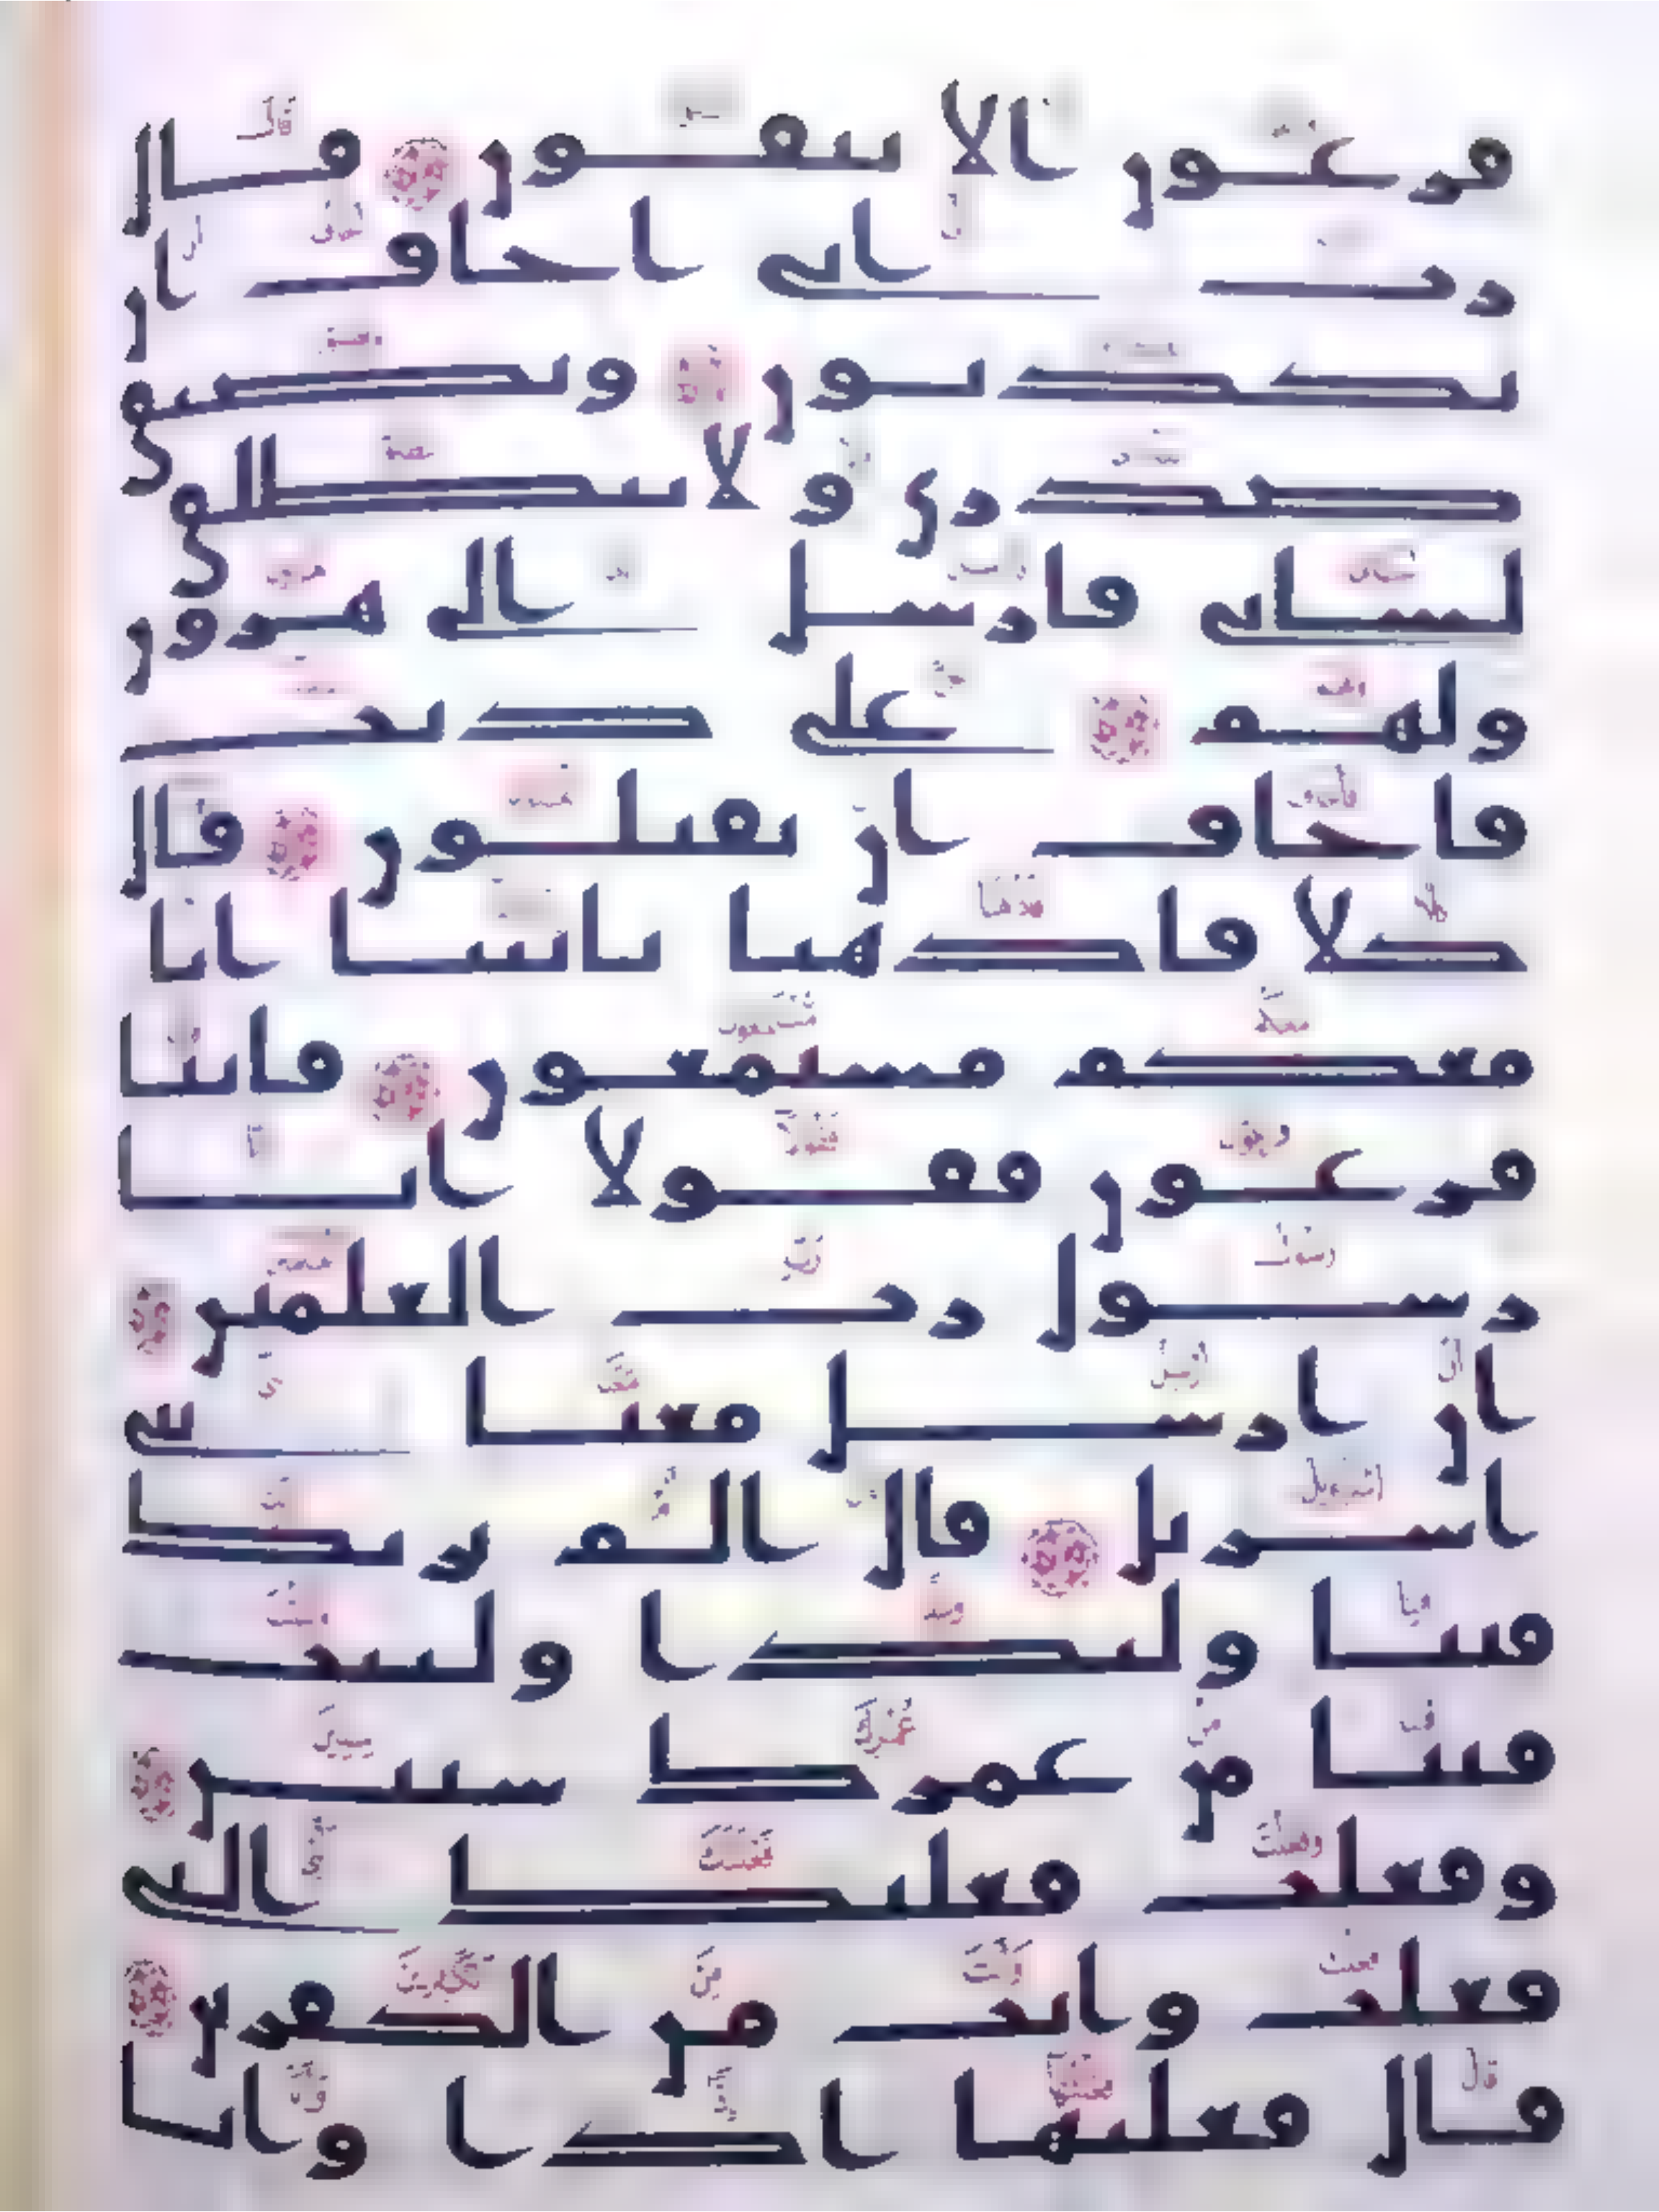 فرعون الا يتقون قال
رب اني اخاف ان
يكذبون ويضيق
صدري ولا ينطلق
لساني فارسل الى هرون
ولهم على ذنب
فاخاف ان يقتلون قال
كلا فاذهبا بايتنا انا
معكم مستمعون فاتيا
فرعون فقولا انا
رسول رب العلمين
ان ارسل معنا بني
اسريل قال الم نربك
فينا وليدا ولبثت
فينا من عمرك سنين
وفعلت فعلتك التي
فعلت وانت من الكفرين
قال فعلتها اذا وانا